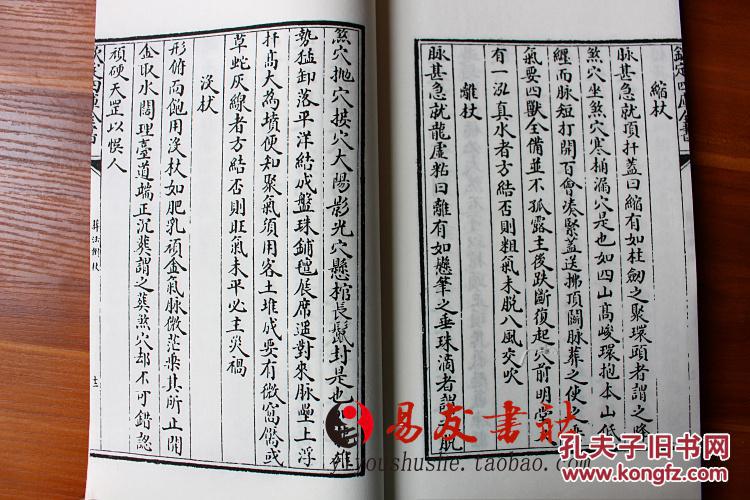 欽定四庫全書
縮杖
脉甚急就頂扦蓋曰縮有如柱劍之聚環頭者謂之
煞穴坐煞穴寒桶漏穴是也如四山高峻環抱本山低
纏而脉短打開百會湊緊蓋送拂頂闘脉葬之使之
氣要四獸全備並不孤露主後跌斷復起穴前明堂
有一泓真水者方結否則粗氣未脱八風交吹
離杖
脉甚急就龍虛粘曰離有如懸筆之垂珠滴者謂脱
煞穴抛穴接穴大陽影光穴懸棺長鬣封是也雄
勢猛卸落平洋結成盤珠鋪氊展席遥對來脉壘上浮
扦高大為墳便知聚氣須用客土堆成要有微窩靨或
草蛇灰線者方結否則旺氣未平必主災禍
没杖
形俯而飽用没杖如肥乳頑金氣脉微茫乘其所止開
金取水闊理臺道端正沉葬謂之葬煞穴却不可錯認
頑硬天罡以悞人
欽定四庫全書
葬法倒杖
易友書社
yiyoushushe.taobao.com
孔夫子旧书网
www.kongfz.com